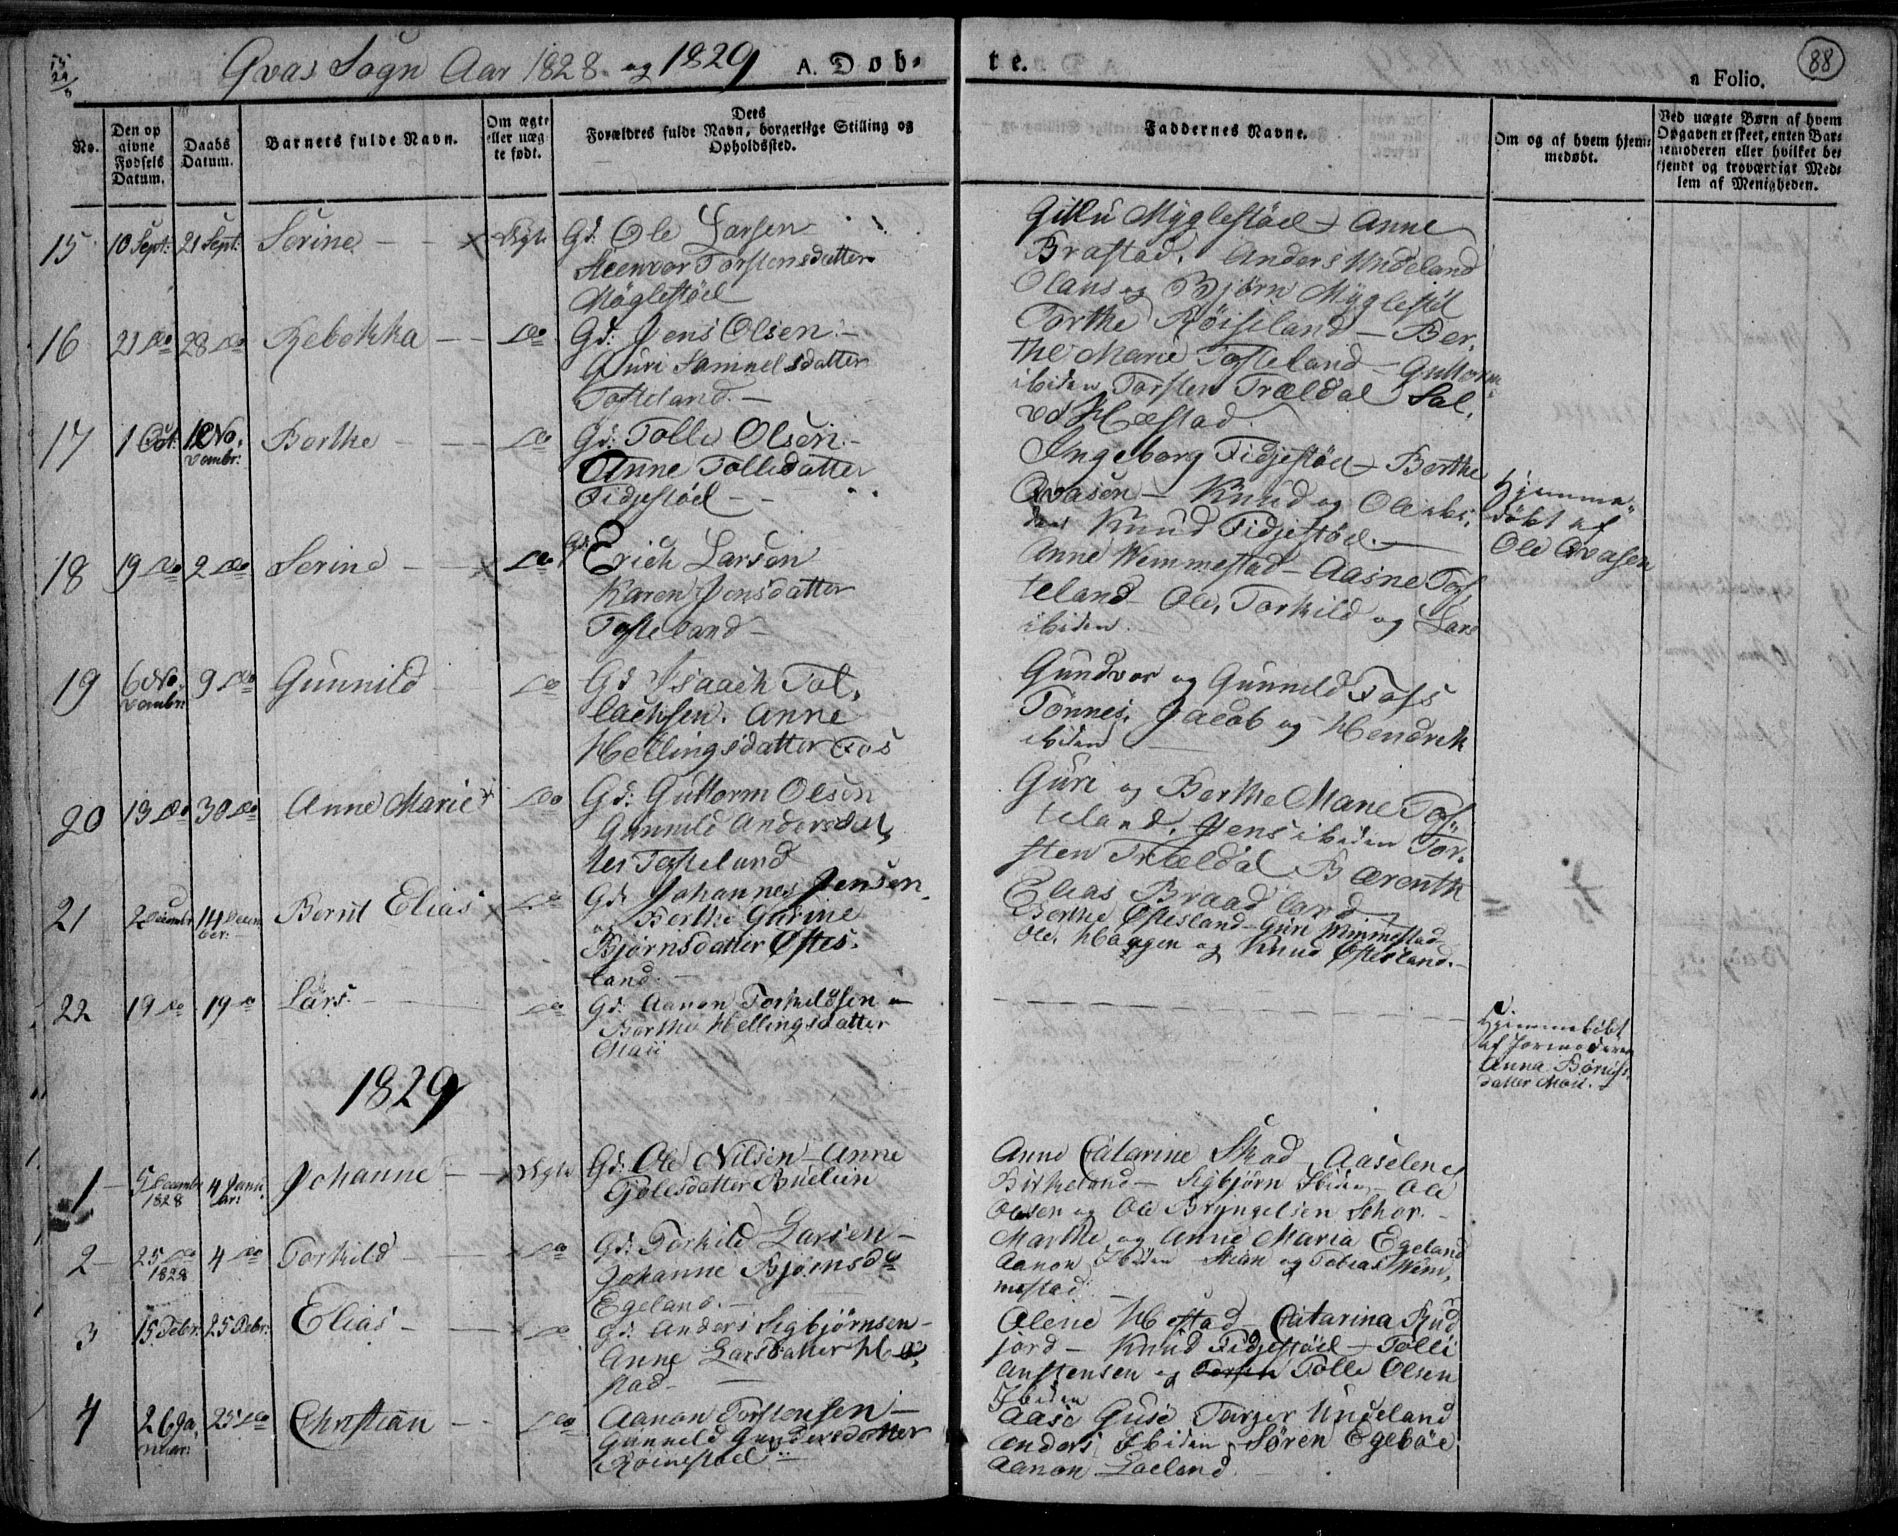 Qvas Sogn Aar 1828. og 1829
A. Døb-
te.
n Folio.
88
No.
Den op
givne
Fødsels
Datum.
Daabs
Datum.
Barnets fulde Navn.
Om ægte
eller uæg
te født.
Dets
Forældres fulde Navn, borgerlige Stilling og
Opholdssted.
Faddernes Navne.
Om og af hvem hjem-
medøbt.
Ved uægte Børn af hvem
Opgaven er skeet, enten Bar-
nemoderen eller hvilket be-
kjendt og troværdigt Med-
lem af Menigheden.
15 10 Sept: 21 Sept: Serine - Ægte Gd: Ole Larsen
Steenvor Torstensdatter
Møglestøel
Anne
Brastad. Anders Undeland
Olaus og Bjørn
16 21 do 28 do Rebekka - do Gd: Jens Olsen -
Guri Samuelsdatter
Tofteland. -
Torthe Røiseland - Ber-
the Marie Tofteland - Guttorm
ibiden Torsten Trældal Sal.
ve Hæstad.
17 1 Oct: No-
vembr: Berthe - do Gd: Tolle Olsen -
Anne Tollisdatter
Fidjestøel -
Ingeborg Fidjestøel - Berthe
Qvasen - Knud og Ole ibi-
den Knud Fidjestøel. -
Hjemme-
døbt af
Ole Qvasen
18 19 do 2 do Serine - do Gd: Erich Larsen
Karen Jensdatter
Tofteland -
Anne Wemmestad - Aasne Tof-
teland - Ole, Torkild og Lars
ibiden.
19 6 No-
vembr: 9 do Gunnild do Gd: Isaach Tol-
lachsen. Anne
Hellingsdatter Fos
Gundvor og Gunnild Foss
Tønnes, Jacob og Hendrik
ibiden
20 13 do 30 do Anne Marie do Gd: Guttorm Olsen
Gunnild Andersdat-
ter Tofteland
Guri og Berthe Marie Tof-
teland, Jens ibiden Tor-
sten Trældal Bærenth
21 2 Decembr 14 Decem-
ber: Bernt Elias do Gd: Johannes Jensen
og Berthe Gurine
Bjørnsdatter Øftes-
land. -
Elias Braadland
Berthe Øftesland - Guri Wemmestad
Ole, Haagen og Knud Øftesland. -
22 19 do 19 do Lars - do Gd: Aanon Torkildsen -
Berthe Hellingsdatter
Moii
Hjemmedøbt
af Jormoderen
Anna
datter Moii.
1829
1 5 Decembr
1828 4 Janu-
ar: Johanne - Ægte Gd: Ole Nilsen - Anne
Anne Catarine Skad - Aaselene
Birkeland - Sigbjørn Ibiden - Ole
Olsen og Ole Bryngelsen
2 25 do
1828 4 do Torkild - do Gd: Torkild Larsen -
Johanne Bjørnsd:
Egeland. -
Marthe og Anne Maria Egeland
Aanon Ibiden Stian og Tobias Wem-
mestad
3 15 Febr: 25 Febr: Elias - do Gd: Anders Sigbjørnsen -
Anne Larsdatter Hæ-
stad -
Alene Hæstad - Catarina Rud-
jord - Knud Fidjestøel - Tolli
Austensen og Tolle Olsen
Ibiden
4 26 Ja-
nuar: 25 do Christian - do Aanon Torstensen -
Gunnild Gundersdatter
Aase Guse Tarjer Undeland
Anders Ibiden - Søren Egebøe
Aanon Loeland